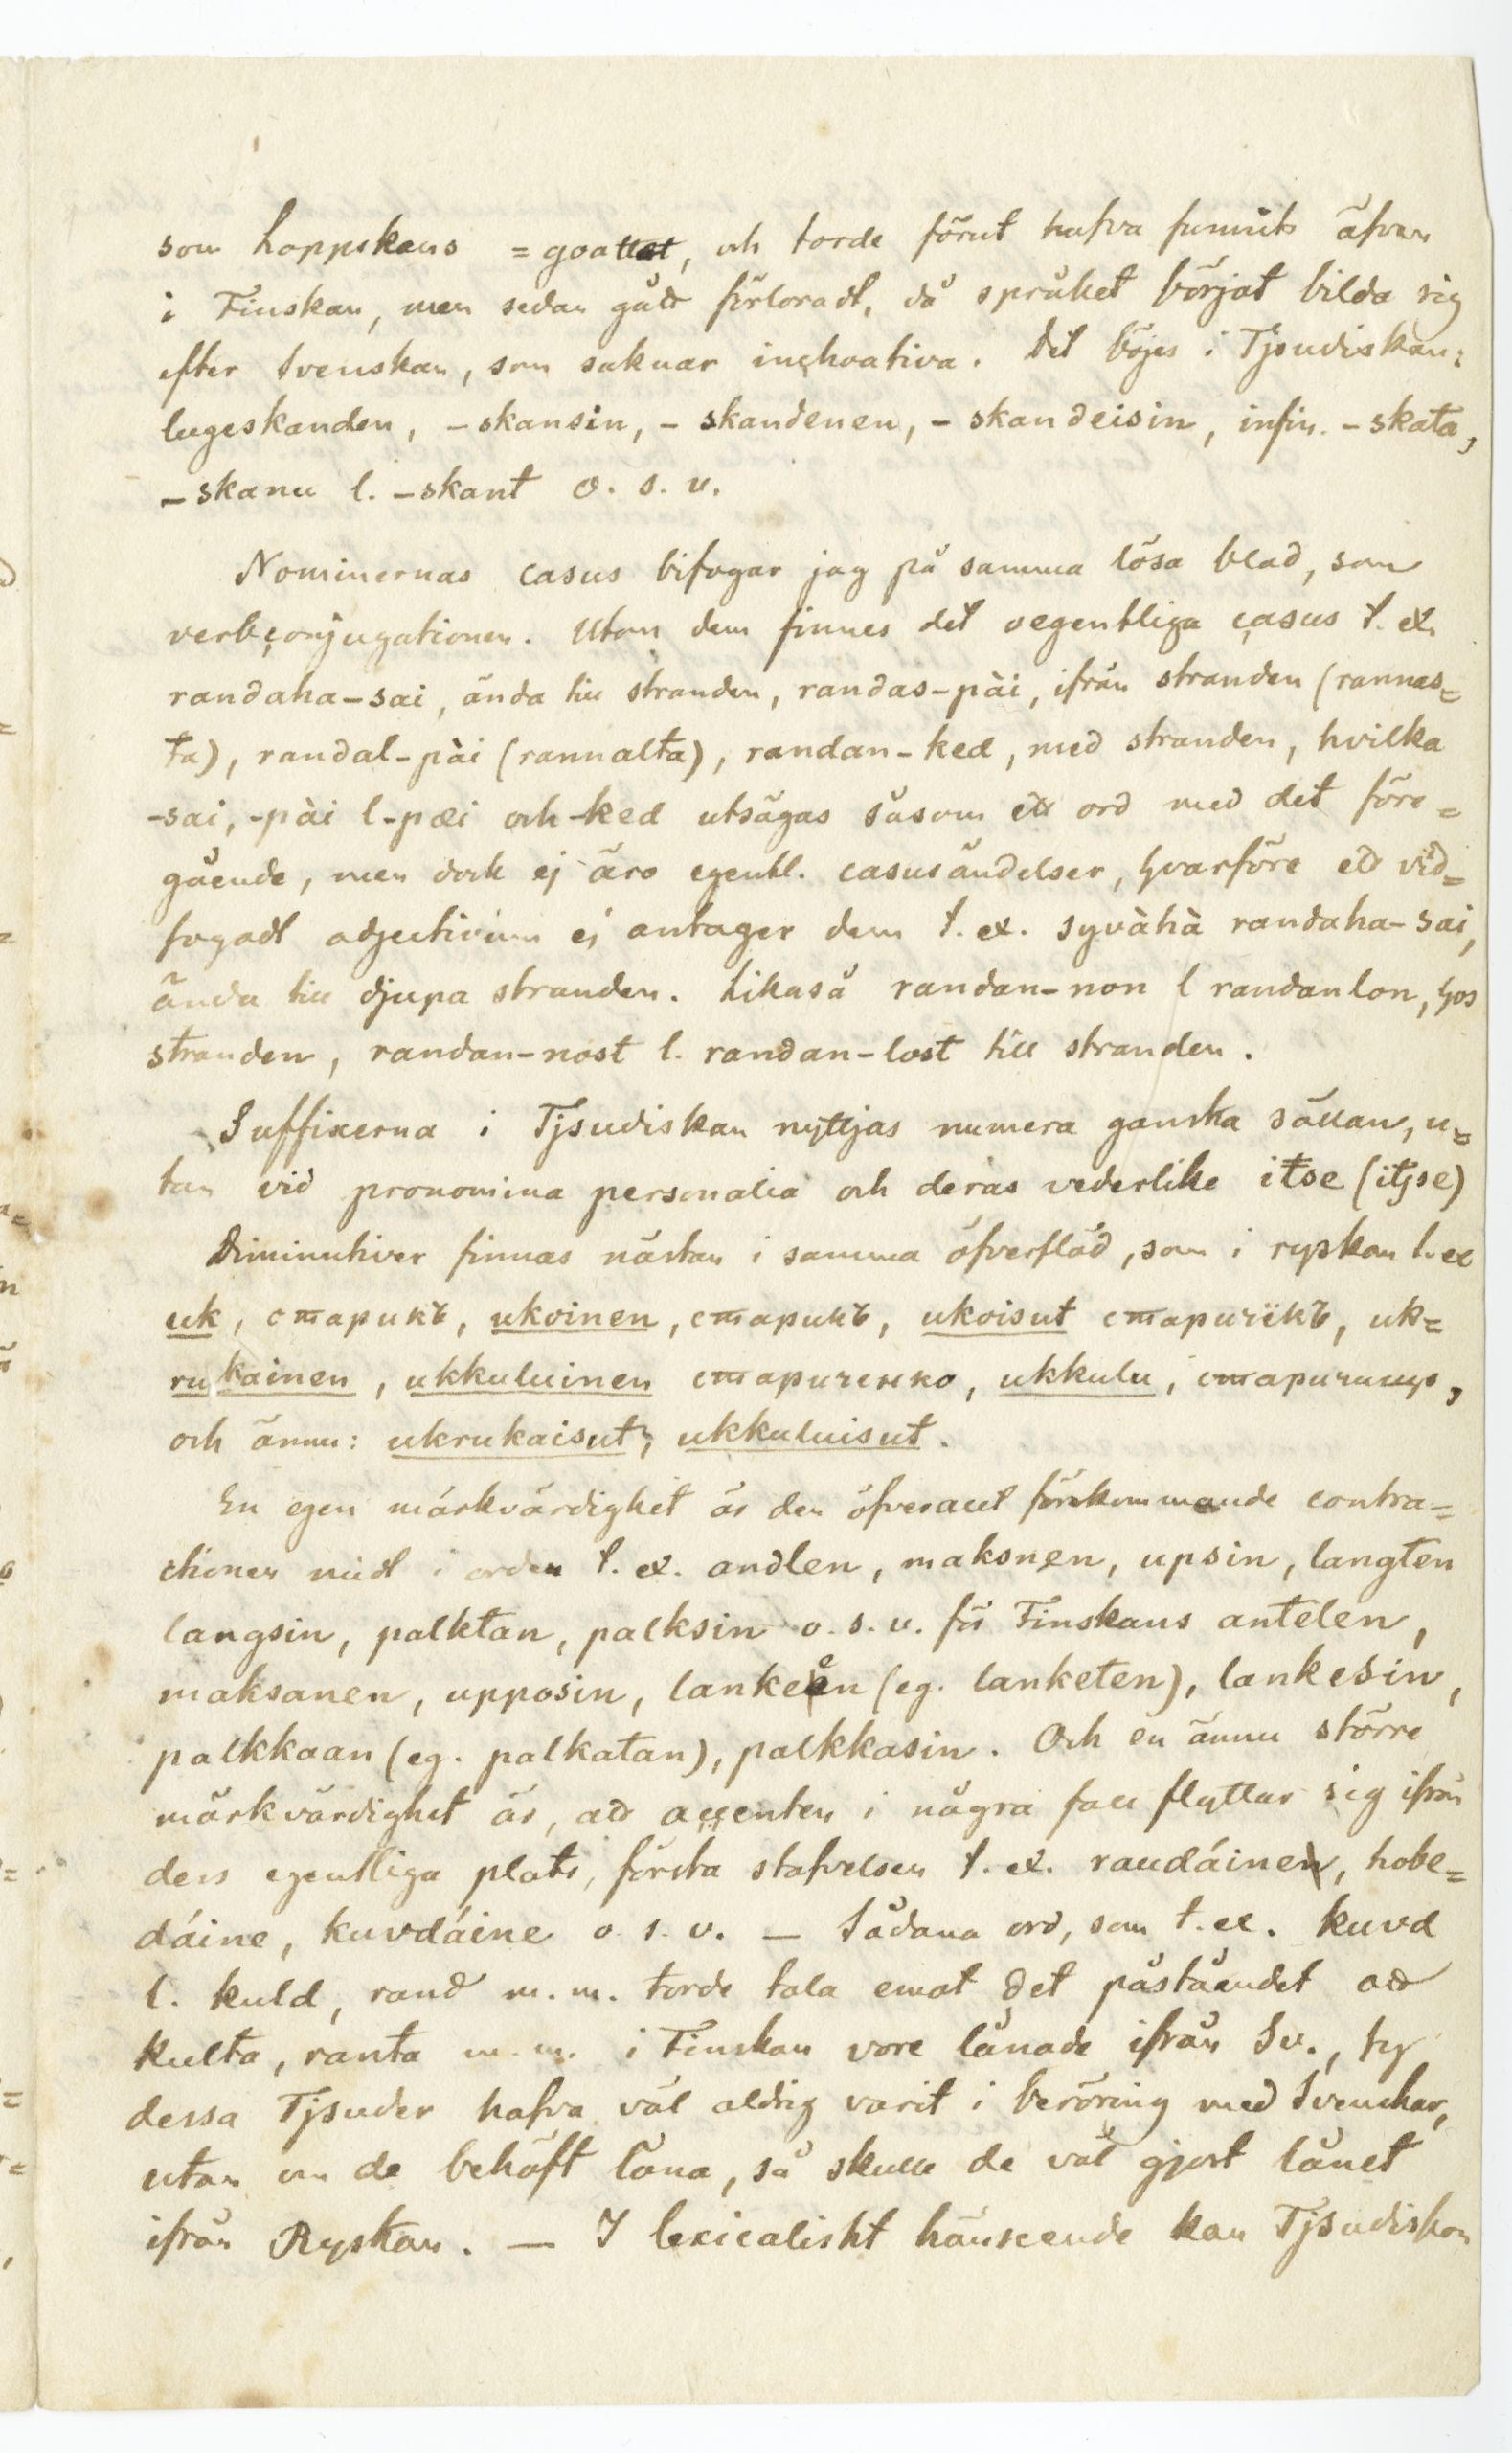 som hoppskens = goattet, och torde förut hafva funnits äfven
i Finskan, men sedan gått förloradt, då språket börjat bilda sig
efter Svenskan, som saknar inchoativa. Det böjes i Tjsudiskan:
lugeskanden, -skansin, -skandenen, -skandeisin, infin. -skata,
-skanu l. -skant o. s. v.
Nominernas casus bifogar jag på samma lösa blad, som
verbconjugationen. Utom dem finnes det oegentliga casus t. ex.
randaha-sai, ända till stranden, randas-päi, ifrån stranden (rannas=
ta), randal-päi (rannalta), randan-ked, med stranden, hvilka
-sai, -pài l -pæi och -ked utsägas såsom ett ord med det före=
gående, men dock ej äro egentl. casusändelser, hvarföre ett vid=
fogadt adjectivum ej antager dem t. ex. syvàhà randaha-sai,
ända till djupa stranden. Likaså randan-non l randanlon, hos
stranden, randan-nost l. randan-lost till stranden.
Suffixerna i Tjsudiskan nyttjas numera ganska sällan, u=
tan vid pronomina personalia och deras vederlike itse (itjse)
Diminutiver finnas nästan i samma öfverflöd, som i ryskan t. ex
uk, старикъ, ukoinen, старикъ, ukoisut старичікъ, uk=
rukainen, ukkuluinen стариченко, ukkulu, старичище,
och ännu: ukrukaisut, ukkuluisut.
En egen märkvärdighet är den öfverallt förekommande contra=
ctionen midt i orden t. ex. andlen, maksnen, upsin, langten
langsin, palktan, palksin o. s. v. för Finskans antelen,
maksanen, upposin, lankeen (eg. lanketen), lankesin,
palkkaan (eg. palkatan), palkkasin. Och en ännu större
märkvärdighet är, att accenten i några fall flyttar sig ifrån
dess egentliga plats, första stafvelsen t. ex. raudáinen, hobe=
dáine, kuvdáine o. s. v. — Sådana ord, som t. ex. kuvd
l. kuld, rand m. m. torde tala emot det påståendet att
kulta, ranta m. m. i Finskan vore lånade ifrån Sv., ty
dessa Tjsuder hafva väl aldrig varit i beröring med Svenskar,
utan om de behöft låna, så skulle de väl gjort lånet
ifrån Ryskan. — I lexicaliskt hänseende kan Tjsudiskan